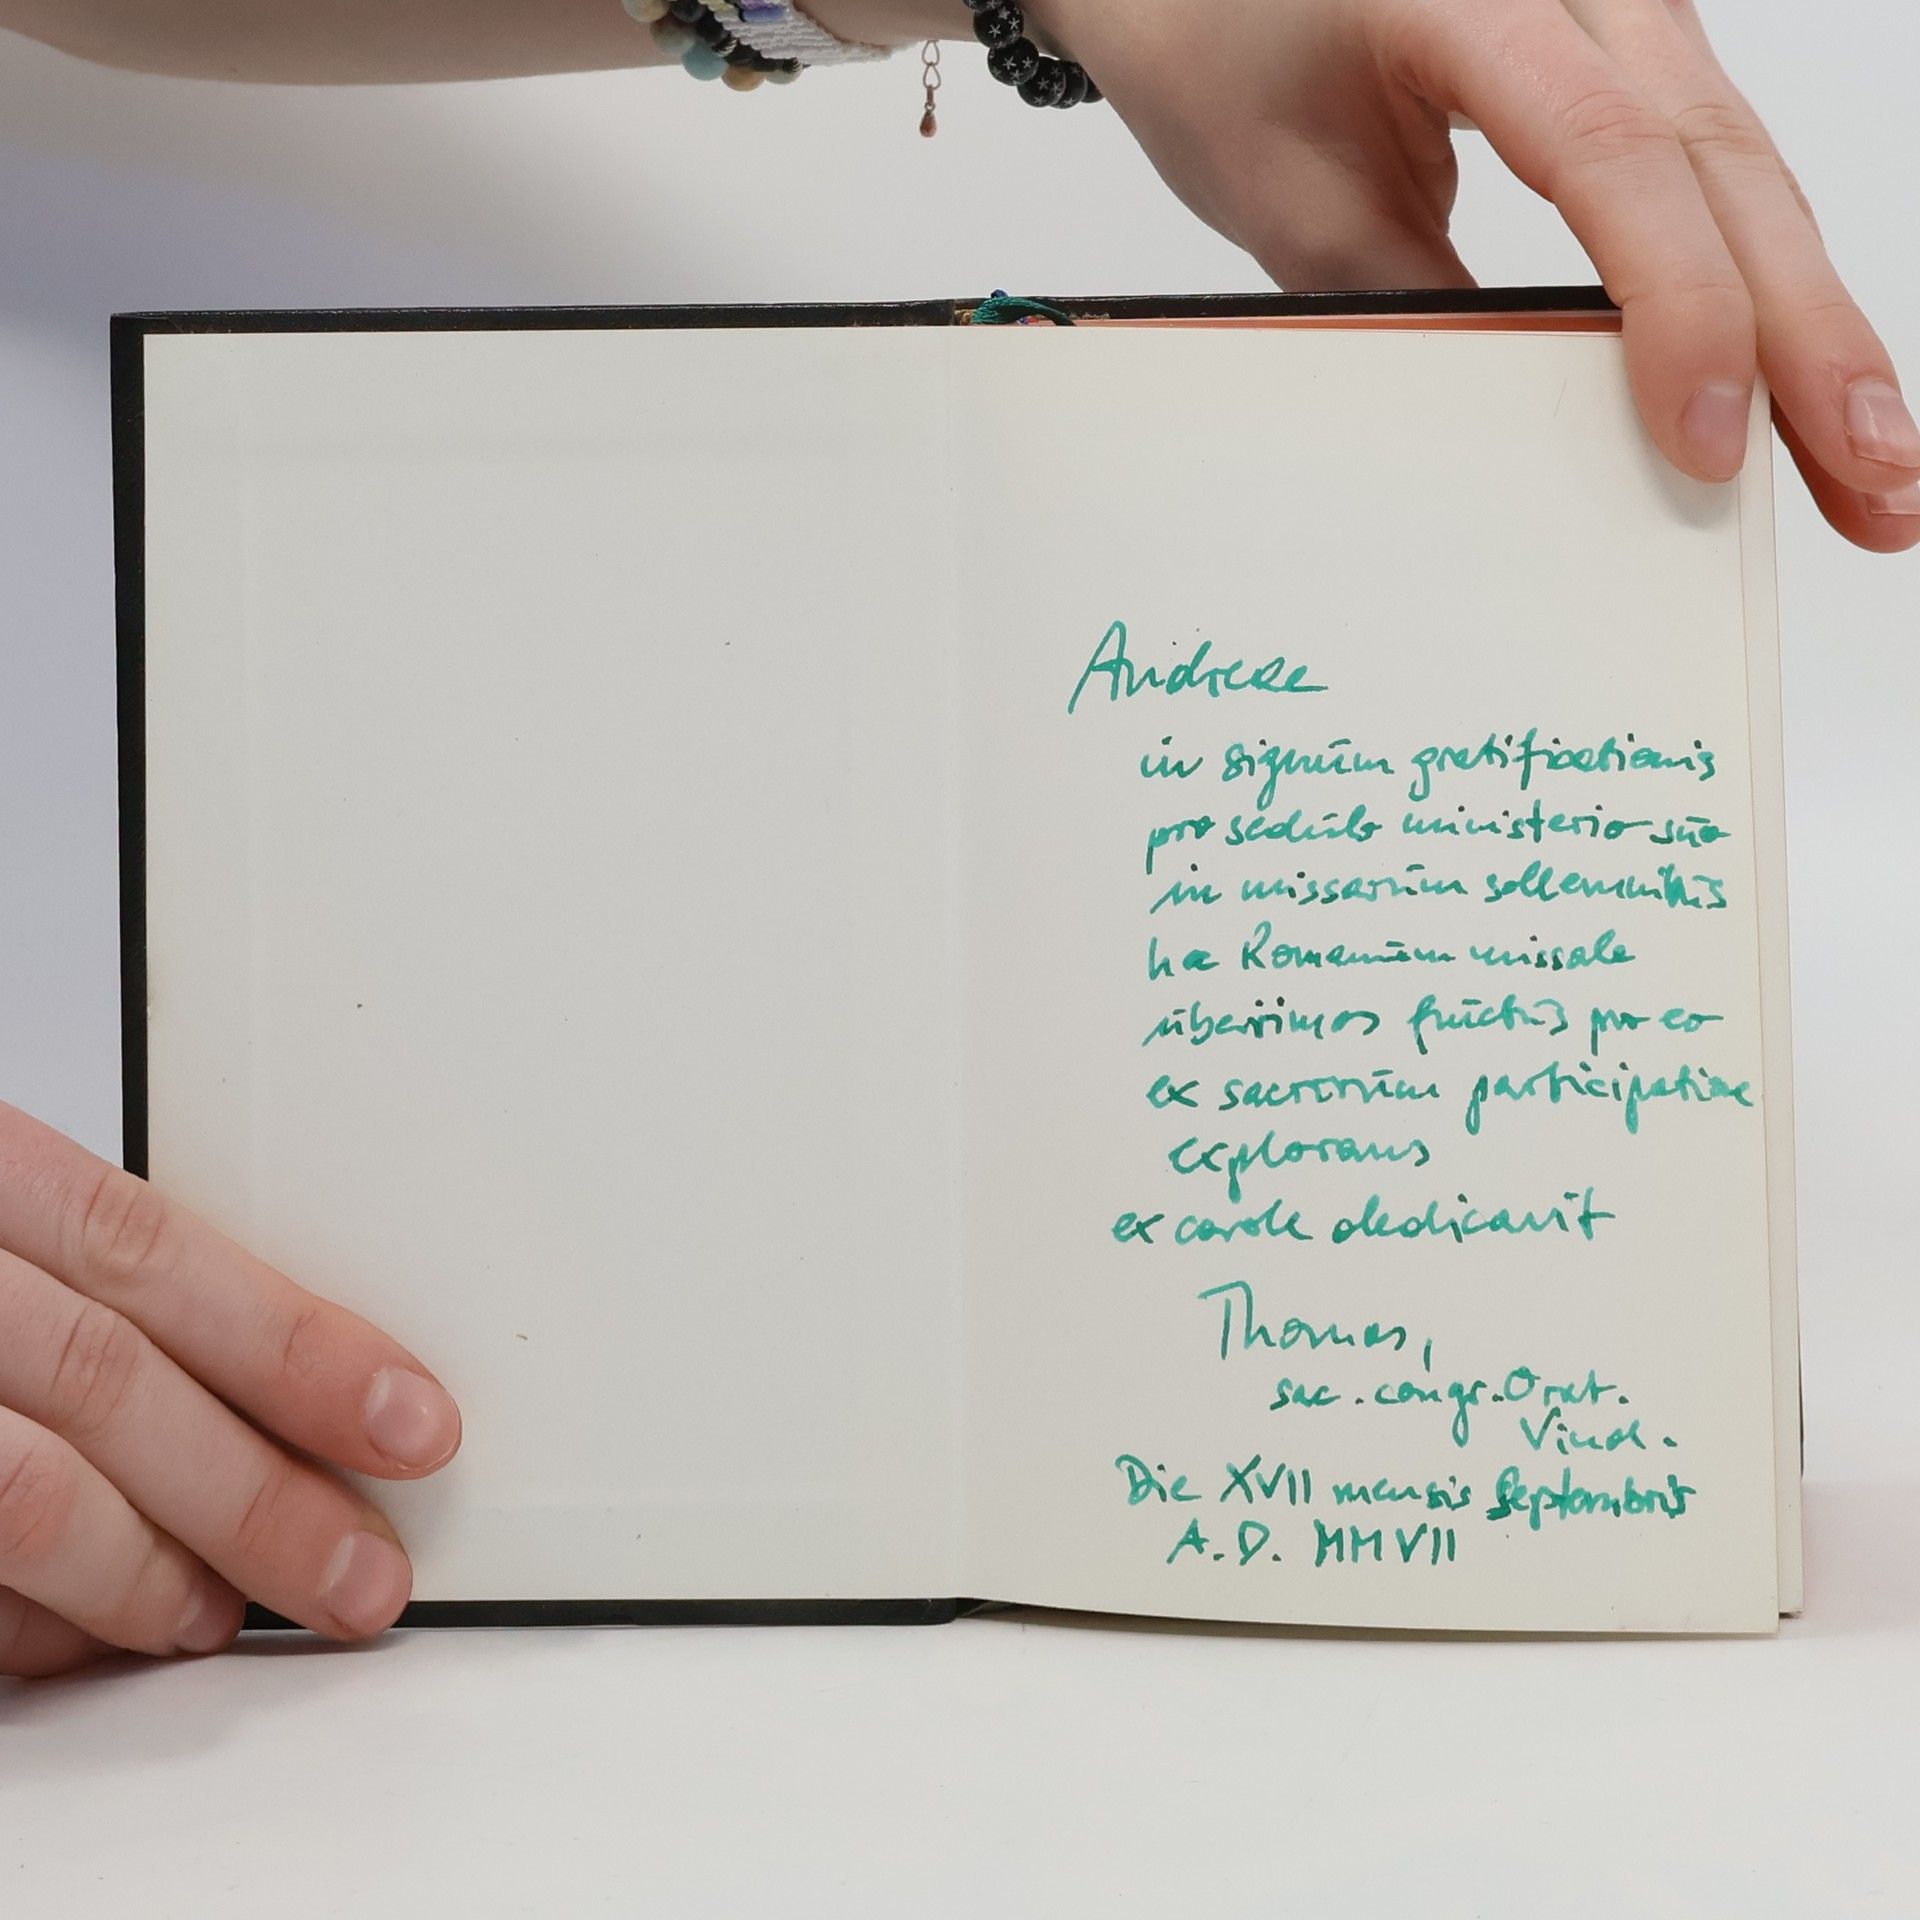 Andreae
in signum gratificationis
pro sedulo ministerio suo
in missarum sollemnibus
hoc Romanum missale
uberrimos fructus pro eo
ex sacrorum participatione
explorans
ex corde dedicavit
Thomas,
sac. congr. Orat.
Vind.
Die XVII mensis Septembris
A. D. MMVII